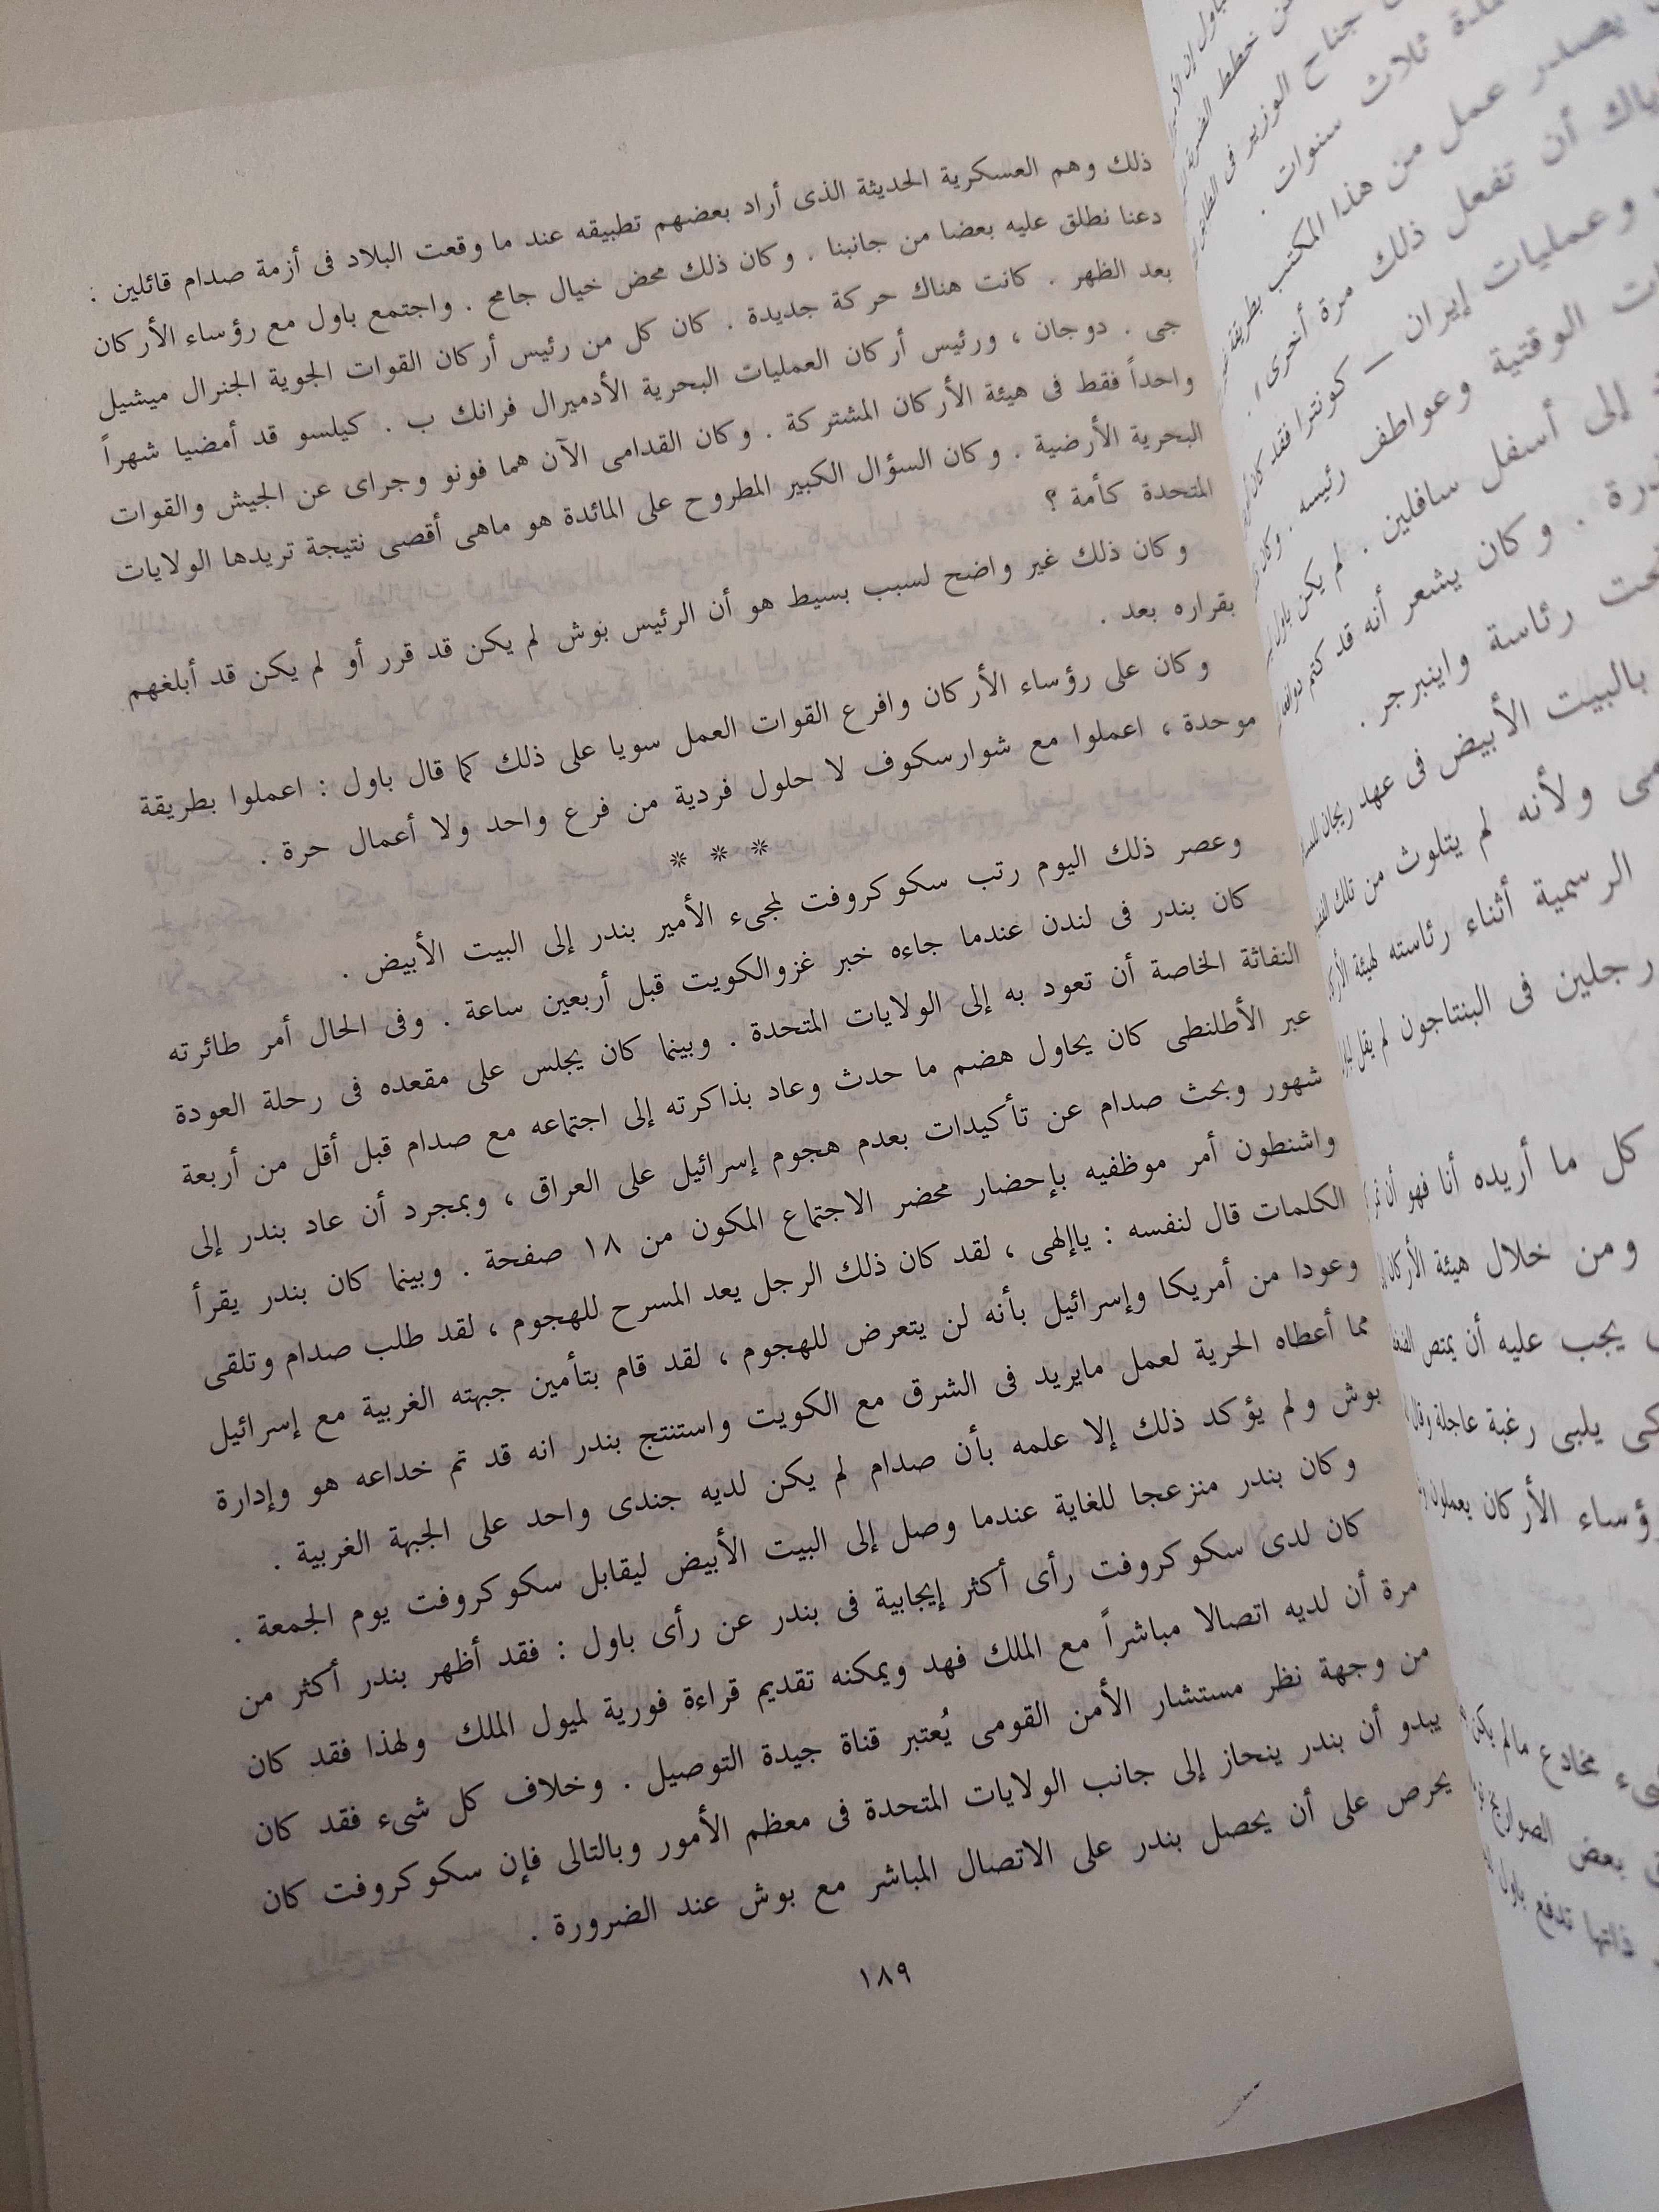 ذلك وهم العسكرية الحديثة الذى أراد بعضهم تطبيقه عند ما وقعت البلاد فى أزمة صدام قائلين :
دعنا نطلق عليه بعضا من جانبنا . وكان ذلك محض خيال جامح . واجتمع باول مع رؤساء الأركان
بعد الظهر . كانت هناك حركة جديدة . كان كل من رئيس أركان القوات الجوية الجنرال ميشيل
جى . دوجان ، ورئيس أركان العمليات البحرية الأدميرال فرانك ب . كيلسو قد أمضيا شهراً
واحداً فقط فى هيئة الأركان المشتركة . وكان القدامى الآن هما فونو وجراى عن الجيش والقوات
البحرية الأرضية . وكان السؤال الكبير المطروح على المائدة هو ماهى أقصى نتيجة تريدها الولايات
المتحدة كأمة ؟
وكان ذلك غير واضح لسبب بسيط هو أن الرئيس بوش لم يكن قد قرر أو لم يكن قد أبلغهم
بقراره بعد .
وكان على رؤساء الأركان وافرع القوات العمل سويا على ذلك كما قال باول : اعملوا بطريقة
موحدة ، اعملوا مع شوارسكوف لا حلول فردية من فرع واحد ولا أعمال حرة .
* * *
وعصر ذلك اليوم رتب سكوكروفت لمجىء الأمير بندر إلى البيت الأبيض .
كان بندر فى لندن عندما جاءه خبر غزوالكويت قبل أربعين ساعة . وفى الحال أمر طائرته
النفاثة الخاصة أن تعود به إلى الولايات المتحدة . وبينما كان يجلس على مقعده فى رحلة العودة
عبر الأطلنطى كان يحاول هضم ما حدث وعاد بذاكرته إلى اجتماعه مع صدام قبل أقل من أربعة
شهور وبحث صدام عن تأكيدات بعدم هجوم إسرائيل على العراق ، وبمجرد أن عاد بندر إلى
واشنطون أمر موظفيه بإحضار محضر الاجتماع المكون من ١٨ صفحة . وبينما كان بندر يقرأ
الكلمات قال لنفسه : ياإلهى ، لقد كان ذلك الرجل يعد المسرح للهجوم ، لقد طلب صدام وتلقى
وعودا من أمريكا وإسرائيل بأنه لن يتعرض للهجوم ، لقد قام بتأمين جبهته الغربية مع إسرائيل
مما أعطاه الحرية لعمل مايريد فى الشرق مع الكويت واستنتج بندر انه قد تم خداعه هو وإدارة
بوش ولم يؤكد ذلك إلا علمه بأن صدام لم يكن لديه جندى واحد على الجبهة الغربية .
وكان بندر منزعجا للغاية عندما وصل إلى البيت الأبيض ليقابل سكوكروفت يوم الجمعة .
كان لدى سكوكروفت رأى أكثر إيجابية فى بندر عن رأى باول : فقد أظهر بندر أكثر من
مرة أن لديه اتصالا مباشراً مع الملك فهد ويمكنه تقديم قراءة فورية لميول الملك ولهذا فقد كان
من وجهة نظر مستشار الأمن القومى يُعتبر قناة جيدة التوصيل . وخلاف كل شىء فقد كان
يبدو أن بندر ينحاز إلى جانب الولايات المتحدة فى معظم الأمور وبالتالى فإن سكوكروفت كان
يحرص على أن يحصل بندر على الاتصال المباشر مع بوش عند الضرورة .
١٨٩
من خطط
جناح الوزير فى
ثلاث سنوات .
يصدر عمل من هذا المكتب بطريقة
أن تفعل ذلك مرة أخرى
وعمليات إيران – كونترا فقد كان
الوقتية وعواطف رئيسه . وكان
إلى أسفل سافلين . لم يكن باول
وكان يشعر أنه قد كتم
رئاسة واينبرجر .
بالبيت الأبيض فى عهد ريجان
ولأنه لم يتلوث من تلك
الرسمية أثناء رئاسته لهيئة
رجلين فى البنتاجون لم يقل
كل ما أريده أنا فهو أن
ومن خلال هيئة الأركان
يجب عليه أن يمتص
يلبى رغبة عاجلة
الأركان يعملون
مخادع مالم يكن
بعض الصواريخ
ذاتها تدفع باول